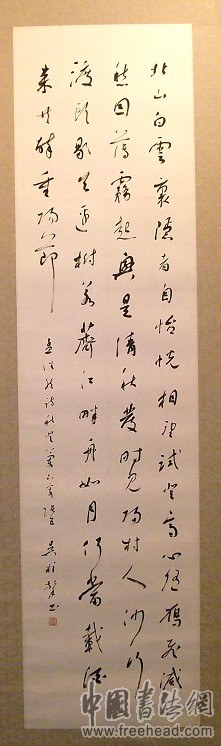 北山白雲裏隱者自怡悦相望試登高心隨鴈飛滅
愁因薄霧起興是清秋發時見歸村人沙行
渡頭歇天邊樹若薺江畔舟如月何當載酒
来共醉重陽節
孟浩然詩秋登蘭山寄張五
中國書法網
www.freehead.com